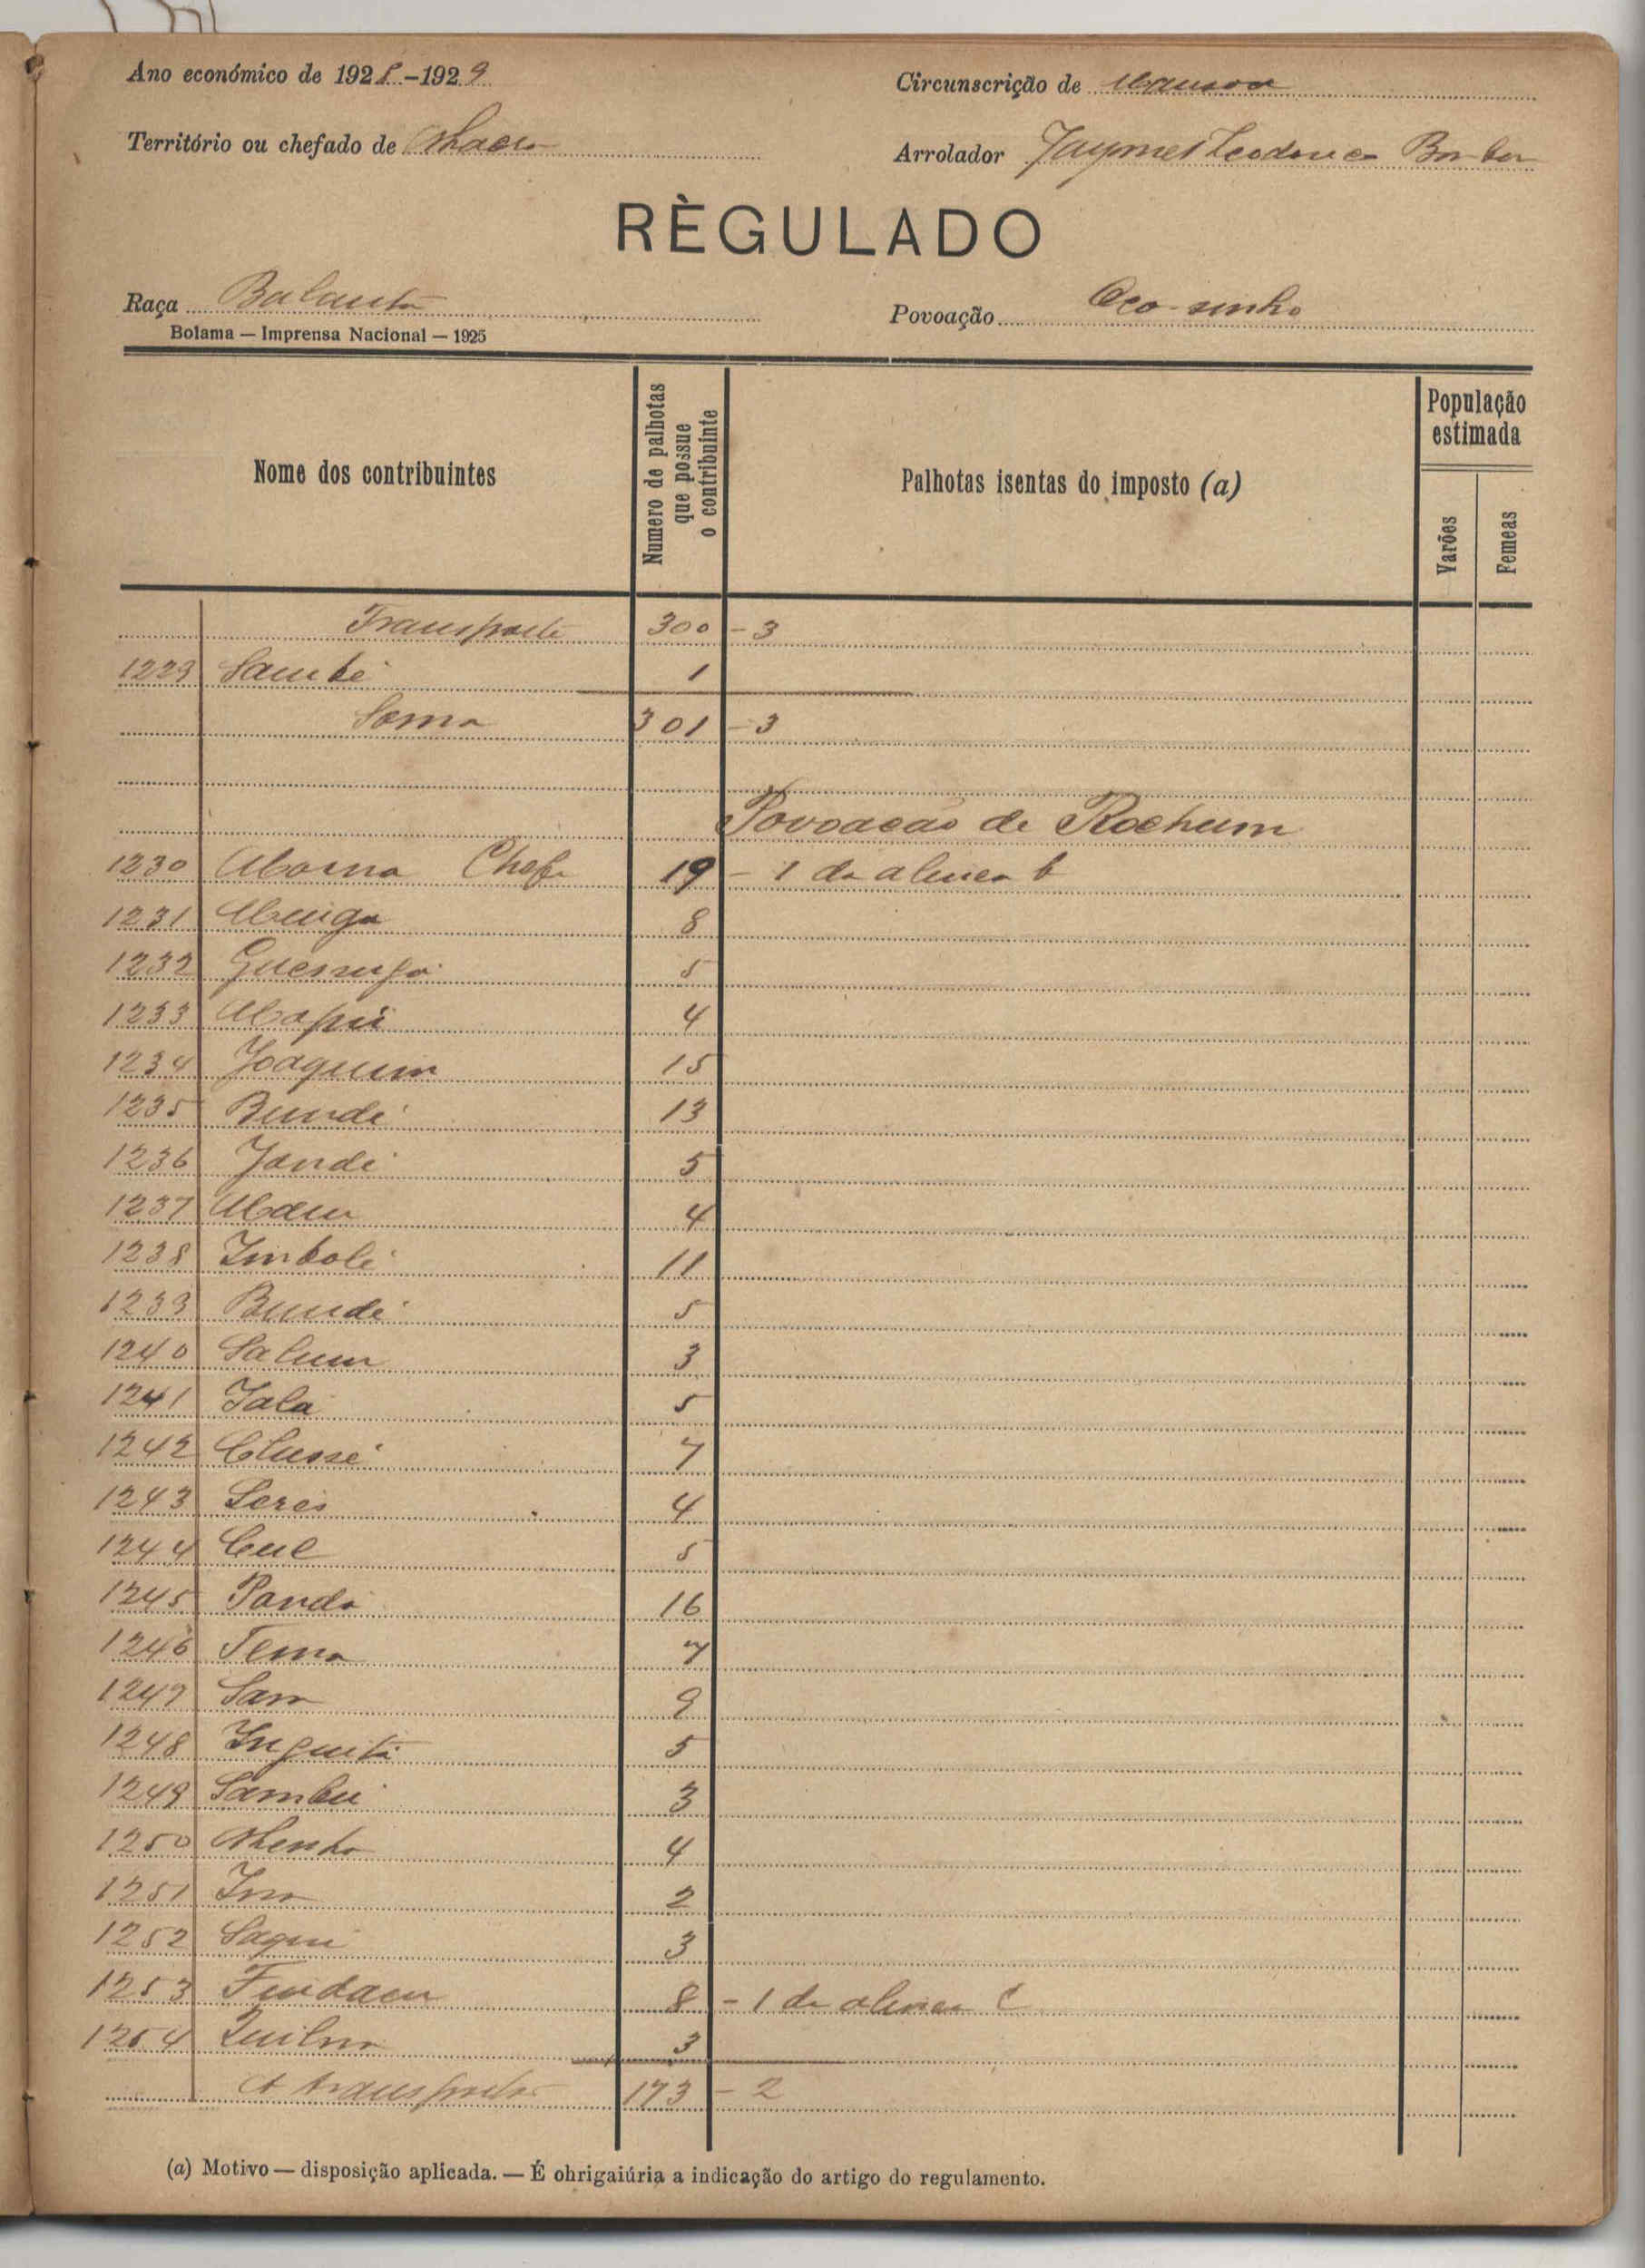 Ano económico de 1928-1929
Circunscrição de Mansoa
Território ou chefado de Nhacra
Arrolador Jayme Teodorico Barber
RÈGULADO
Raça Balanta
Povoação Oco-sinho
Bolama — Imprensa Nacional — 1925
Nome dos contribuintes
Numero de palhotas que possue o contribuinte
Palhotas isentas do imposto (a)
População estimada
Varões
Femeas
Transporte 300 - 3
1229 Sambé 1
Soma 301 - 3
Povoacão de Rochum
1230 Mama Chefe 19 - 1 da alinea b
1231 8
1232 5
1233 Mapú 4
1234 Joaquim 15
1235 Bundé 13
1236 Jandi 5
1237 4
1238 Imbolé 11
1239 Bundé 5
1240 Salum 3
1241 Iala 5
1242 Clussé 7
1243 4
1244 Cul 5
1245 Panda 16
1246 Tema 7
1247 San 9
1248 Inguitá 5
1249 Sambú 3
1250 4
1251 Inn 2
1252 Saqui 3
1253 8 - 1 da alinea C
1254 Quilna 3
A transportar 173 - 2
(a) Motivo — disposição aplicada. — É ohrigaiúria a indicação do artigo do regulamento.